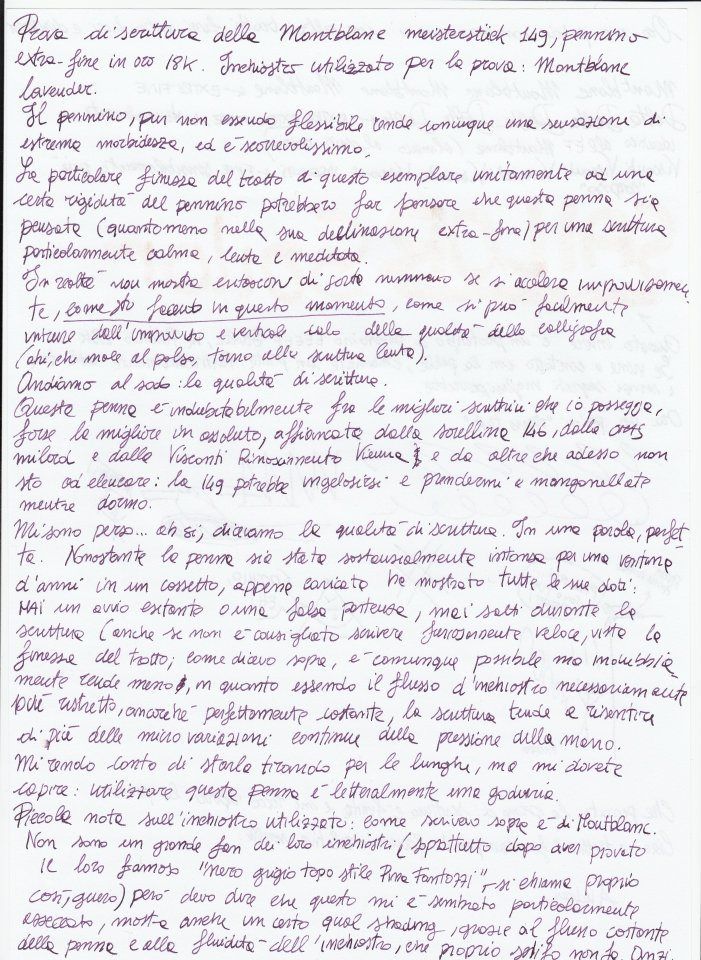 Prova di scrittura della Montblanc meisterstück 149, pennino
extra-fine in oro 18K. Inchiostro utilizzato per la prova: Montblanc
lavender.
Il pennino, pur non essendo flessibile rende comunque una sensazione di
estrema morbidezza, ed è scorrevolissimo.
La particolare finezza del tratto di questo esemplare unitamente ad una
certa rigidità del pennino potrebbero far pensare che questa penna sia
pensata (quantomeno nella sua declinazione extra-fine) per una scrittura
particolarmente calma, lenta e meditata.
In realtà non mostra di sorta nemmeno se si accelera improvvisamen
te, come sto facendo in questo momento, come si può facilmente
intuire dall'improvviso e verticale calo della qualità della calligrafia
(ahi, che male al polso, torno alla scrittura lenta).
Andiamo al sodo: la qualità di scrittura.
Questa penna è indubitabilmente fra le migliori scrittrici che io possegga,
forse la migliore in assoluto, affiancata dalla sorellina 146, dalla cross
milord e dalla Visconti Rinascimento Vienna e da altre che adesso non
sto ad elencare: la 149 potrebbe ingelosirsi e prendermi a manganellate
mentre dormo.
Mi sono perso... ah si, dicevamo la qualità di scrittura. In una parola, perfet
ta. Nonostante la penna sia stata sostanzialmente intonsa per una ventina
d'anni in un cassetto, appena caricata ha mostrato tutte le sue doti:
MAI un avvio esitante o una falsa partenza, mai salti durante la
scrittura (anche se non è consigliato scrivere furiosamente veloce, vista la
finezza del tratto; come dicevo sopra, è comunque possibile ma indubbia-
mente rende meno, in quanto essendo il flusso d'inchiostro necessariamente
più ristretto, ancorché perfettamente costante, la scrittura tende a risentire
di più delle micro variazioni continue della pressione della mano.
Mi rendo conto di starla tirando per le lunghe, ma mi dovete
capire: utilizzare questa penna è letteralmente una goduria.
Piccola nota sull'inchiostro utilizzato: come scrivevo sopra è di Montblanc.
Non sono un grande fan dei loro inchiostri (soprattutto dopo aver provato
il loro famoso "nero grigio topo stile Pina Fantozzi" - si chiama proprio
così, giuro) però devo dire che questo mi è sembrato particolarmente
azzeccato, mostra anche un certo qual shading, grazie al flusso costante
della penna e alla fluidità dell'inchiostro, che proprio schifo non fa. Anzi.